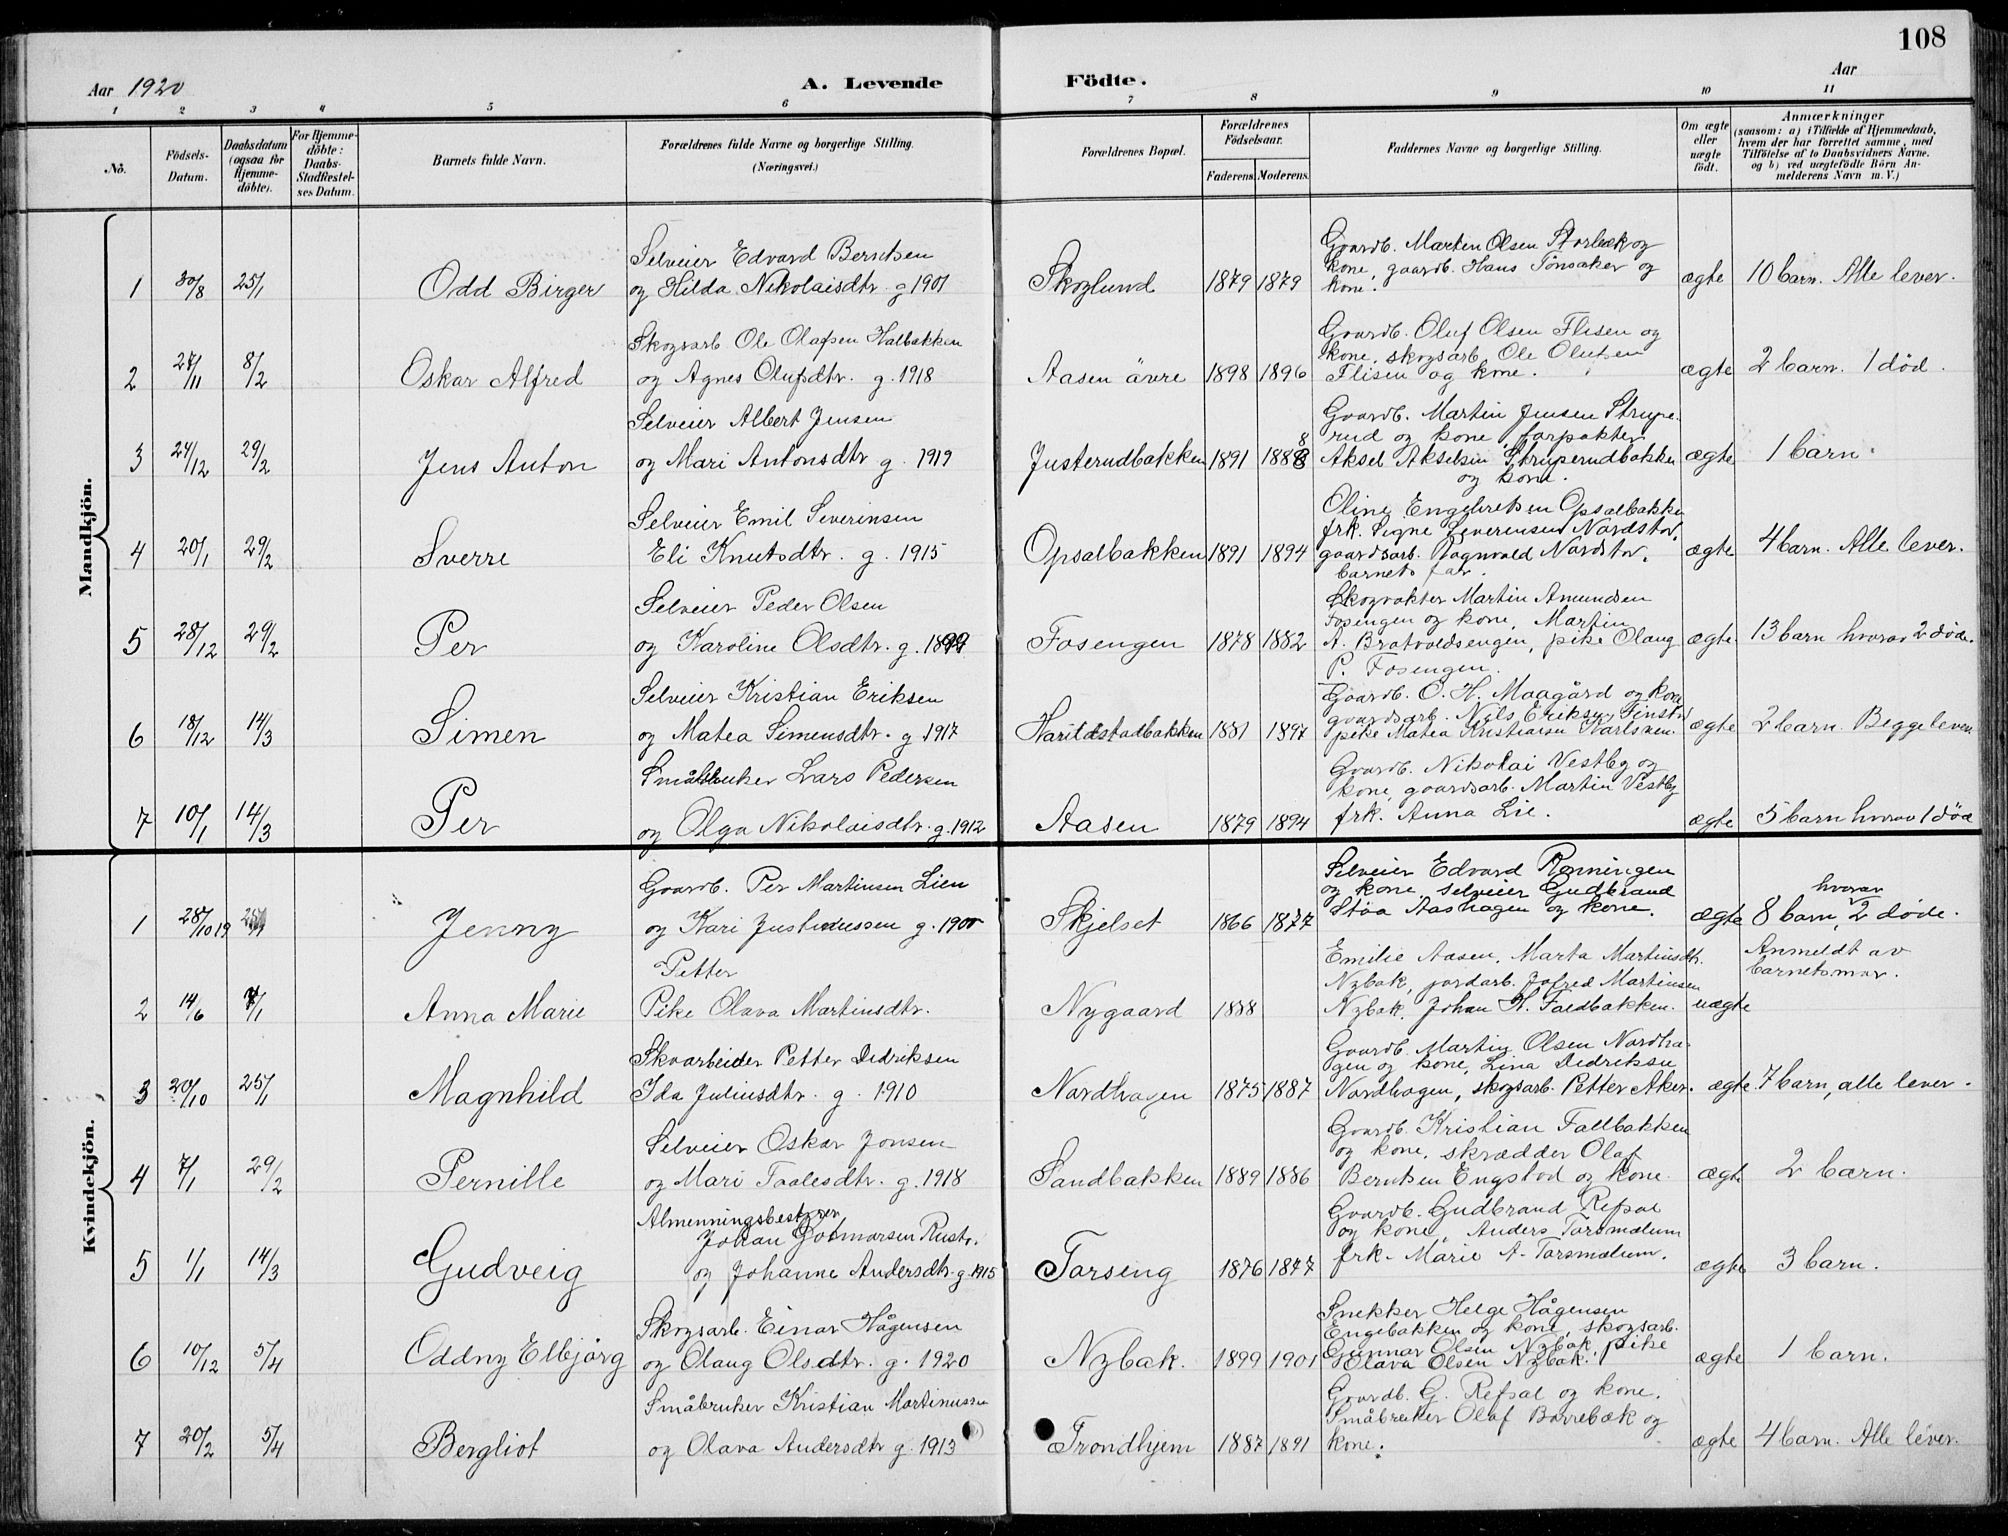 108
Aar 1920
A. Levende Födte.
Aar
1 2 3 4 5 6 7 8 9 10 11
No.
Födsels-Datum.
Daabsdatum (ogsaa for Hjemme-döbte).
For Hjemme-döbte: Daabs-Stadfæstel-ses Datum.
Barnets fulde Navn.
Forældrenes fulde Navne og borgerlige Stilling. (Næringsvei.)
Forældrenes Bopæl.
Forældrenes Födselsaar.
Faderens. Moderens.
Faddernes Navne og borgerlige Stilling.
Om ægte eller uægte født.
Anmærkninger
(saasom: a) i Tilfælde af Hjemmedaab, hvem der har forrettet samme, med Tilföielse af to Daabsvidners Navne. og b) ved uægtefödte Börn An-melderens Navn m. V.)
Mandkjön.
1 30/8 25/1 Odd Birger
Selveier Edvard Berntsen
og Hilda Nikolaisdtr. g 1901
Skoglund 1879 1879
Gaardb. Martin Olsen Storbæk og
kone, gaardb. Hans Tönsaker og
kone.
ægte 10 barn. Alle lever.
2 27/11 8/2 Oskar Alfred
Skogsarb. Ole Olafsen Halbakken
og Agnes Olufsdtr. g. 1918
Aasen övre 1898 1896
Gaardb. Oluf Olsen Flisen og
kone, skogsarb. Ole Olufsen
Flisen og kone.
ægte 2 barn. 1 död.
3 24/12 29/2 Jens Anton
Selveier Albert Jensen
og Mari Antonsdtr g 1919
Justerudbakken 1891 1888
Gaardb. Martin Jensen Strupe-
rud og kone, forpakter
Aksel Akselsen Struperudbakken
og kone.
ægte 1 barn.
4 20/1 29/2 Sverre
Selveier Emil Severinsen
Eli Knutsdtr. g. 1915
Opsalbakken 1891 1894
Oline Engebretsen Opsalbakken
frk. Signe Severensen Nordstov,
gaardsarb. Ragnvald Nordstov.
barnets far.
ægte 4 barn. Alle lever.
5 28/12 29/2 Per
Selveier Peder Olsen
og Karoline Olsdtr. g. 1899
Fosengen 1878 1882
Skogvokter Martin Amundsen
Fosengen og kone, Martin
A. Bratvoldsengen, pike Olaug
P. Fosengen.
ægte 13 barn hvorav 2 döde.
6 18/12 14/3 Simen
Selveier Kristian Eriksen
og Matea Simensdtr. g 1917
Harildstadbakken 1881 1897
Gaardb. O. H. Maagård og kone
gaardsarb. Nils Eriksen Finstad
pike Matea Kristiansen Karlsven.
ægte 2 barn. Begge lever.
7 10/1 14/3 Per
Småbruker Lars Pedersen
og Olga Nikolaisdtr. g. 1912
Aasen 1879 1894
Gaardb. Nikolai Vestby og
kone, gaardsarb. Martin Vestby
frk. Anna Lie.
ægte 5 barn hvorav 1 död
Kvindekjön.
1 28/10 19 Jenny
Gaardb. Per Martinsen Lien
og Kari Justinussen g. 1900
Skjelset 1866 1877
Selveier Edvard Rönningen
og kone, selveier Gudbrand
Stöa Aashagen og kone.
ægte 8 barn, hvorav 2 döde.
2 14/6 4/1 Anna Marie
Petter
Pike Olava Martinsdtr.
Nygaard 1888
Emilie Aasen, Marta Martinsdtr.
Nybak, jordarb. Jofred Martinsen
Nybak, Johan H. Faldbakken.
uægte Anmeldt av
barnets mor.
3 20/10 25/1 Magnhild
Skoarbeider Petter Didriksen
Ida Juliusdtr. g. 1910
Nordhagen 1875 1887
Gaardb. Martin Olsen Nordha-
gen og kone, Lina Didriksen
Nordhagen, skogsarb. Petter Aker.
ægte 7 barn, alle lever.
4 7/1 29/2 Pernille
Selveier Oskar Jonsen
og Mari Taalesdtr. g. 1918
Sandbakken 1889 1886
Gaardb. Kristian Fallbakken
og kone, skrædder Olaf
Berntsen Engstad og kone.
ægte 2 barn.
5 1/1 14/3 Gudveig
Almenningsbestyrer
Johan Gotmarsen Rustr.
og Johanne Andersdtr. g. 1915
Torseng 1876 1877
Gaardb. Gudbrand Refsal
og kone, Anders Torsmælum
frk. Marie A. Torsmælum.
ægte 3 barn.
6 10/12 5/4 Oddny Elbjörg
Skogsarb. Einar Hågensen
og Olaug Olsdtr. g. 1920
Nybak. 1899 1901
Snekker Helge Hågensen
Engebakken og kone, skogsarb.
Gunnar Olsen Nybak, pike
Olava Olsen Nybak.
ægte 1 barn.
7 20/2 5/4 Bergliot
Småbruker Kristian Martinussen
og Olava Andersdtr g. 1913
Trondhjem 1887 1891
Gaardb. G. Refsal og kone.
Småbruker Olaf Borrebæk og
kone.
ægte 4 barn. Alle lever.